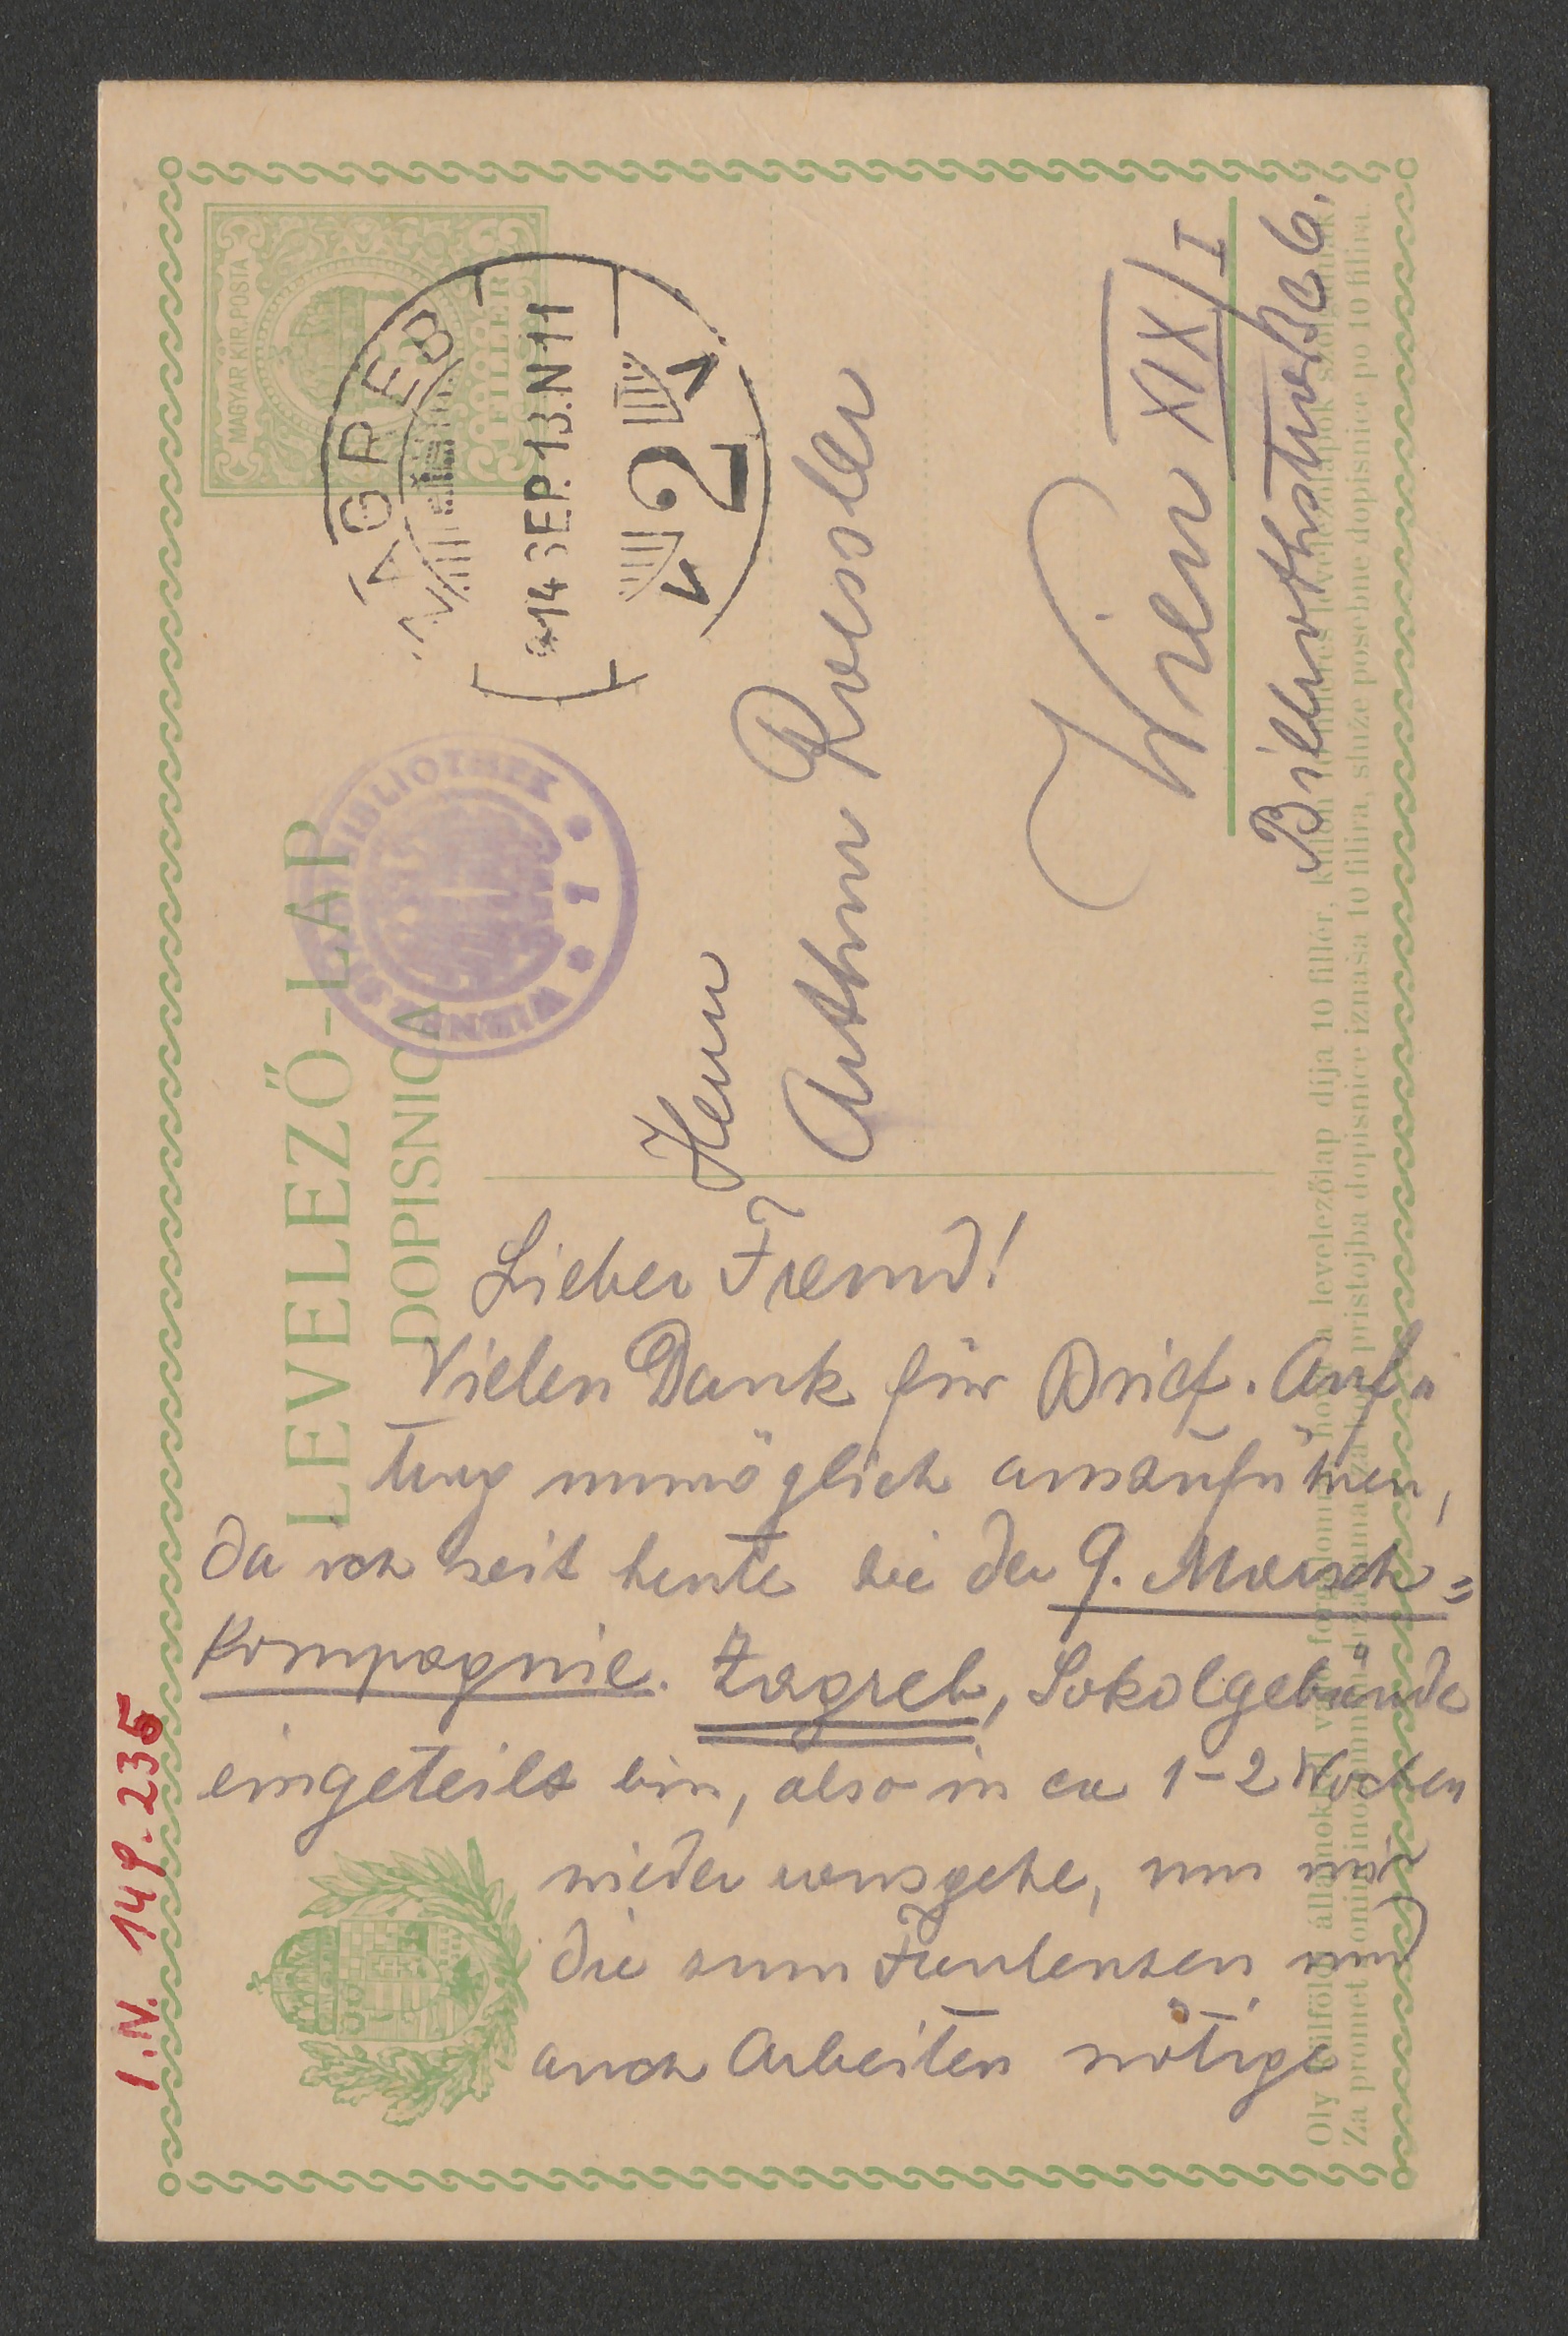 LEVELEZŐ-LAP
DOPISNICA
MAGYAR KIR. POSTA
FILLÉR
ZAGREB
914 SEP. 13. N 11
2
BIBLIOTHEK
WIENER
1
Herrn
Arthur Roessler
Wien XIX/I
Billrothstraße 6.
Lieber Freund!
Vielen Dank für Brief. Auf-
trag unmöglich auszuführen,
da ich seit heute bei der 9. Marsch=
Kompagnie. Zagreb, Sokolgebäude
eingeteilt bin, also in ca 1-2 Wochen
wieder ausgehe, um mir
die zum Faulenzen und
auch Arbeiten nötige
I.N. 149.235
a levelezőlap díja 10 fillér,
Za promet
pristojba dopisnice iznaša 10 filira, služe posebne dopisnice po 10 filira.